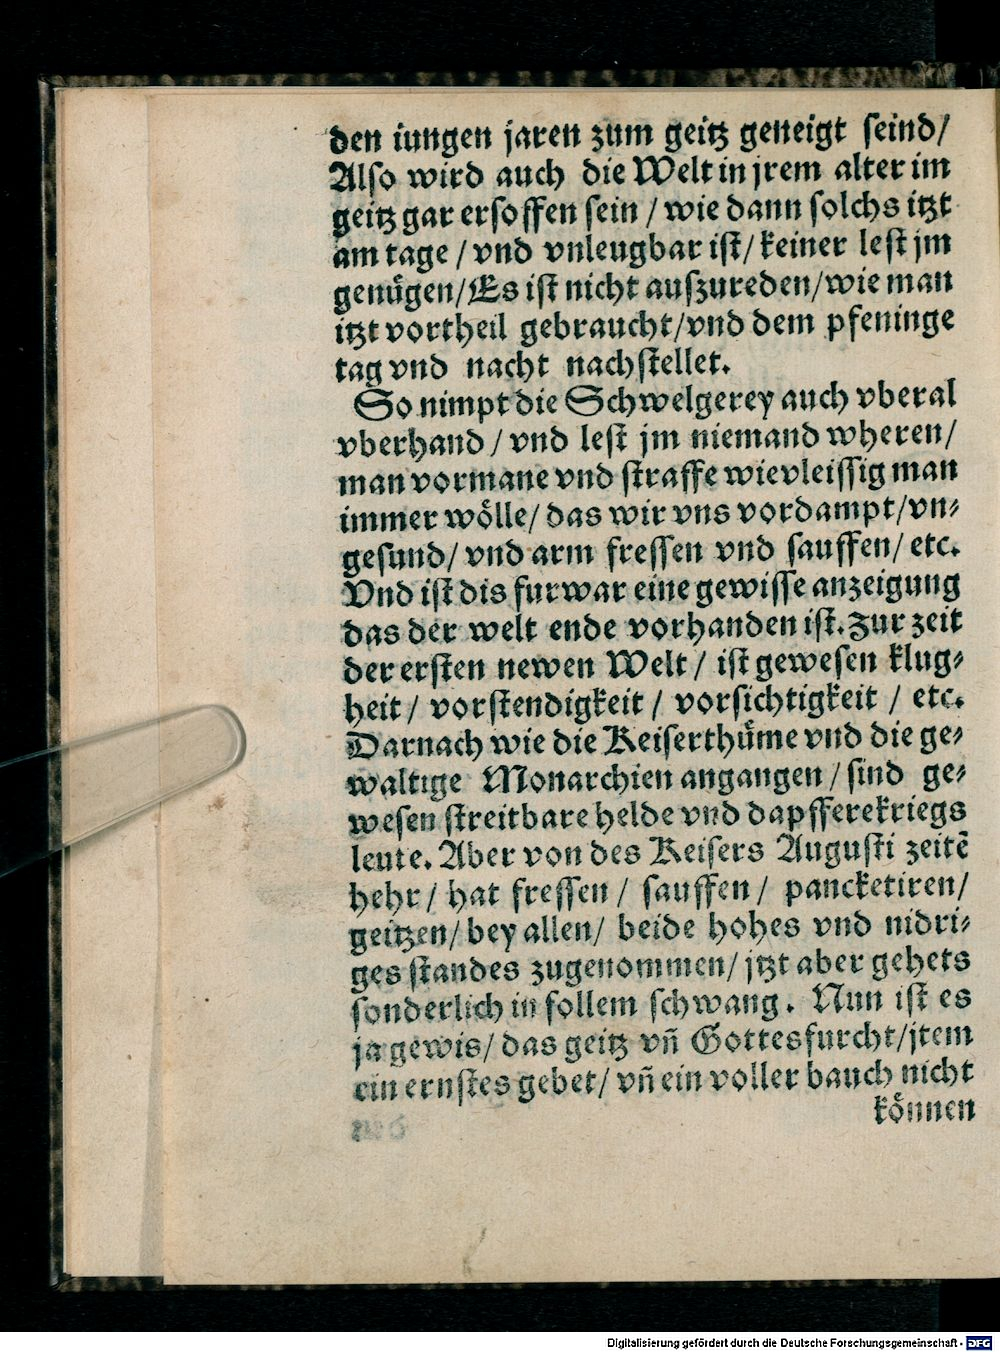 den iungen jaren zum geitz geneigt seind/
Also wird auch die Welt in jrem alter im
geitz gar ersoffen sein / wie dann solchs itzt
am tage / vnd vnleugbar ist/ keiner lest jm
genuͤgen/ Es ist nicht auszureden/ wie man
itzt vortheil gebraucht/ vnd dem pfeninge
tag vnd nacht nachstellet.
So nimpt die Schwelgerey auch vberal
vberhand / vnd lest jm niemand wheren/
man vormane vnd straffe wie vleissig man
immer woͤlle/ das wir vns vordampt/ vn⸗
gesund/ vnd arm fressen vnd sauffen/ etc.
Vnd ist dis furwar eine gewisse anzeigung
das der welt ende vorhanden ist. Zur zeit
der ersten newen Welt / ist gewesen klug⸗
heit / vorstendigkeit / vorsichtigkeit / etc.
Darnach wie die Keiserthuͤme vnd die ge⸗
waltige Monarchien angangen / sind ge⸗
wesen streitbare helde vnd dapffere kriegs
leute. Aber von des Keisers Augusti zeitẽ
hehr / hat fressen / sauffen / pancketiren/
geitzen/ bey allen/ beide hohes vnd nidri⸗
ges standes zugenommen/ jtzt aber gehets
sonderlich in follem schwang. Nun ist es
ja gewis/ das geitz vñ Gottesfurcht/ jtem
ein ernstes gebet/ vñ ein voller bauch nicht
koͤnnen
Digitalisierung gefördert durch die Deutsche Forschungsgemeinschaft - DFG